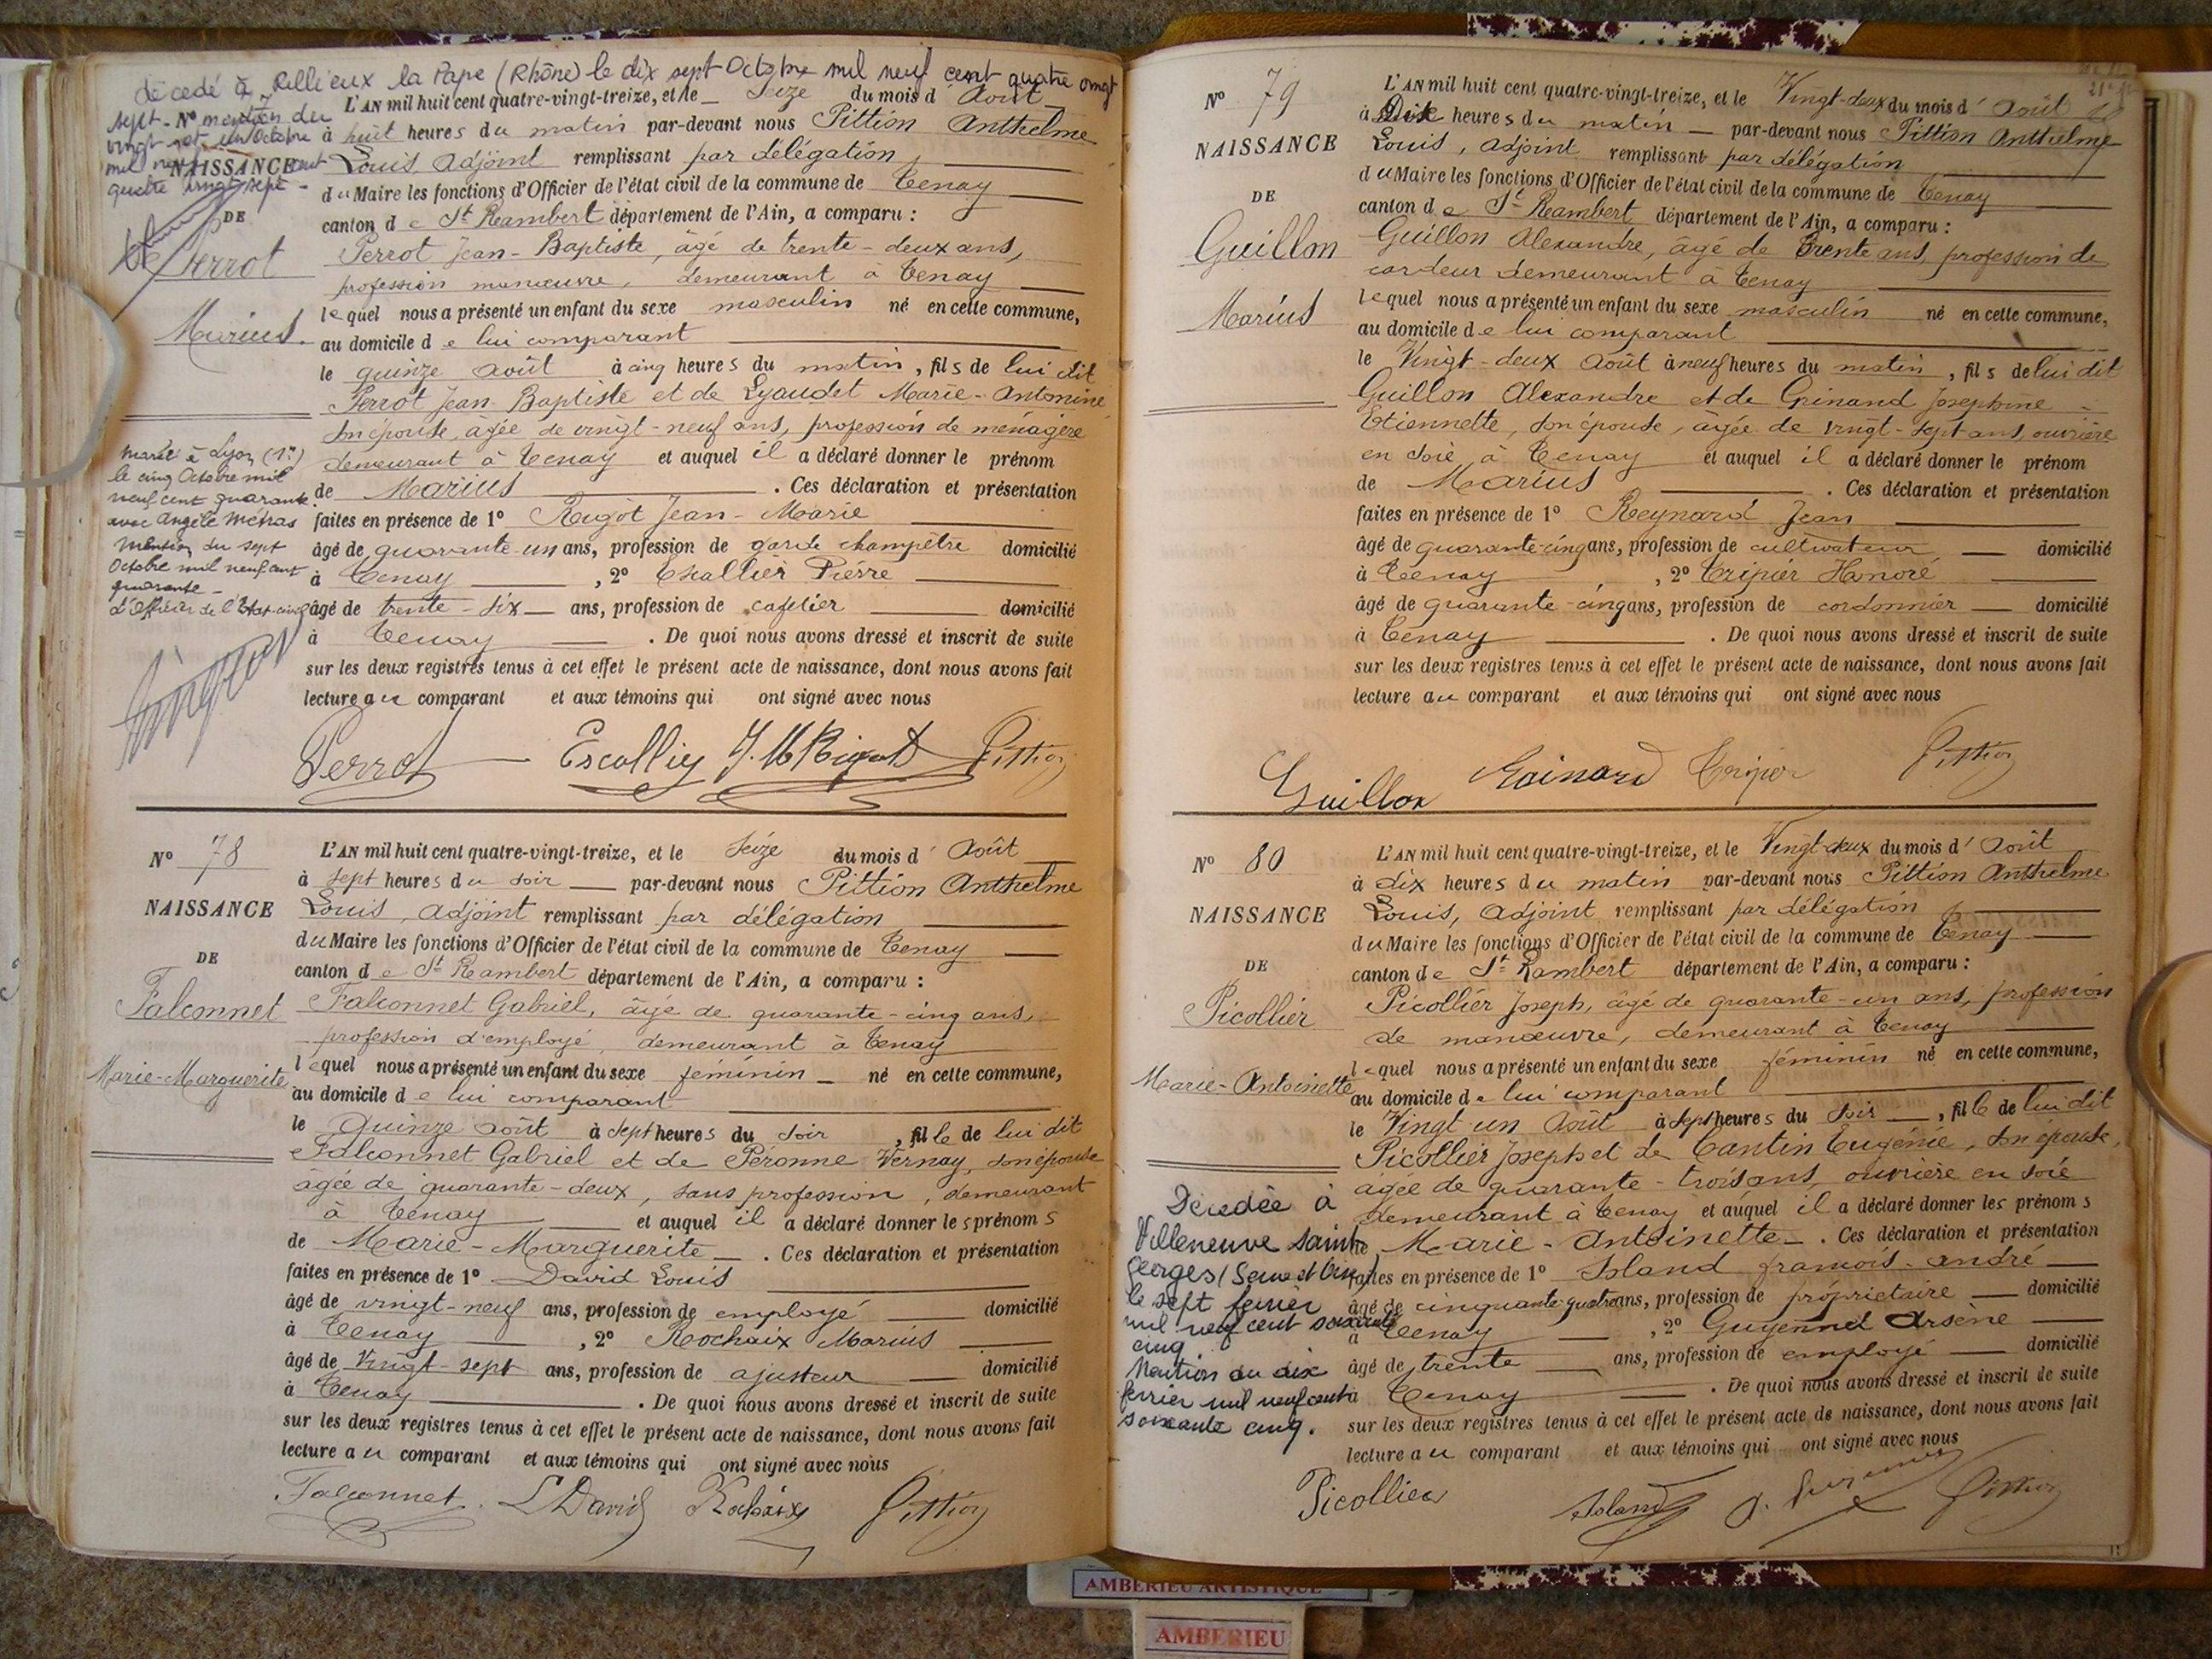 décedé à Rillieux la Pape (Rhône) le dix sept Octobre mil neuf cent quatre vingt
sept - N° mention du
vingt et un Octobre
mil neuf cent
quatre vingt sept -
NAISSANCE
DE
Perrot
Marius.
L'AN mil huit cent quatre-vingt-treize, et le Seize du mois d' Août
à huit heures du matin par-devant nous Pittion Anthelme
Louis adjoint remplissant par délégation
du Maire les fonctions d'Officier de l'état civil de la commune de Tenay
canton de St Rambert département de l'Ain, a comparu :
Perrot Jean-Baptiste, âgé de trente-deux ans,
profession manœuvre, demeurant à Tenay
lequel nous a présenté un enfant du sexe masculin né en cette commune,
au domicile de lui comparant
le quinze août à cinq heures du matin, fils de lui dit
Perrot Jean-Baptiste et de Lyaudet Marie-Antonine
son épouse, âgée de vingt-neuf ans, profession de ménagère
demeurant à Tenay et auquel il a déclaré donner le prénom
de Marius . Ces déclaration et présentation
faites en présence de 1° Rigot Jean-Marie
âgé de quarante-un ans, profession de garde champêtre domicilié
à Tenay , 2° Escallier Pierre
âgé de trente-six ans, profession de cafetier domicilié
à Tenay . De quoi nous avons dressé et inscrit de suite
sur les deux registres tenus à cet effet le présent acte de naissance, dont nous avons fait
lecture au comparant et aux témoins qui ont signé avec nous
Marié à Lyon (1er)
le cinq Octobre mil
neuf cent quarante
avec Angèle Métras
Mention du sept
Octobre mil neuf cent
quarante -
L'Officier de l'Etat-civil
Perrot Escallier J. M Rigot Pittion
N° 78
NAISSANCE
DE
Falconnet
Marie-Marguerite
L'AN mil huit cent quatre-vingt-treize, et le Seize du mois d' Août
à sept heures du soir par-devant nous Pittion Anthelme
Louis, adjoint remplissant par délégation
du Maire les fonctions d'Officier de l'état civil de la commune de Tenay
canton de St Rambert département de l'Ain, a comparu :
Falconnet Gabriel, âgé de quarante-cinq ans,
profession d'employé, demeurant à Tenay
lequel nous a présenté un enfant du sexe féminin né en cette commune,
au domicile de lui comparant
le Quinze août à sept heures du soir , fille de lui dit
Falconnet Gabriel et de Péronne Vernay, son épouse
âgée de quarante-deux, sans profession, demeurant
à Tenay et auquel il a déclaré donner les prénoms
de Marie-Marguerite . Ces déclaration et présentation
faites en présence de 1° David Louis
âgé de vingt-neuf ans, profession de employé domicilié
à Tenay , 2° Rochaix Marius
âgé de Vingt-sept ans, profession de ajusteur domicilié
à Tenay . De quoi nous avons dressé et inscrit de suite
sur les deux registres tenus à cet effet le présent acte de naissance, dont nous avons fait
lecture au comparant et aux témoins qui ont signé avec nous
Falconnet. L David Rochaix Pittion
N° 79
NAISSANCE
DE
Guillon
Marius
L'AN mil huit cent quatre-vingt-treize, et le Vingt-deux du mois d' Août
à Dix heures du matin par-devant nous Pittion Anthelme
Louis, adjoint remplissant par délégation
du Maire les fonctions d'Officier de l'état civil de la commune de Tenay
canton de St Rambert département de l'Ain, a comparu :
Guillon Alexandre, âgé de trente ans, profession de
cardeur demeurant à Tenay
lequel nous a présenté un enfant du sexe masculin né en cette commune,
au domicile de lui comparant
le Vingt-deux Août à neuf heures du matin , fils de lui dit
Guillon Alexandre et de Grinand Josephine
Etiennette, son épouse, âgée de vingt-sept ans, ouvrière
en soie à Tenay et auquel il a déclaré donner le prénom
de Marius . Ces déclaration et présentation
faites en présence de 1° Reynard Jean
âgé de quarante-cinq ans, profession de cultivateur domicilié
à Tenay , 2° Tripier Honoré
âgé de quarante-cinq ans, profession de cordonnier domicilié
à Tenay . De quoi nous avons dressé et inscrit de suite
sur les deux registres tenus à cet effet le présent acte de naissance, dont nous avons fait
lecture au comparant et aux témoins qui ont signé avec nous
Guillon Rainard Tripier Pittion
N° 80
NAISSANCE
DE
Picollier
Marie-Antoinette
L'AN mil huit cent quatre-vingt-treize, et le Vingt-deux du mois d' Août
à dix heures du matin par-devant nous Pittion Anthelme
Louis, adjoint remplissant par délégation
du Maire les fonctions d'Officier de l'état civil de la commune de Tenay
canton de St Rambert département de l'Ain, a comparu :
Picollier Joseph, âgé de quarante-un ans, profession
de manœuvre, demeurant à Tenay
lequel nous a présenté un enfant du sexe féminin né en cette commune,
au domicile de lui comparant
le Vingt un Août à sept heures du soir , fille de lui dit
Picollier Joseph et de Cantin Eugénie, son épouse,
âgée de quarante-trois ans, ouvrière en soie
demeurant à Tenay et auquel il a déclaré donner les prénoms
de Marie-Antoinette . Ces déclaration et présentation
faites en présence de 1° Soland françois-andré
âgé de cinquante-quatre ans, profession de propriétaire domicilié
à Tenay , 2° Guyennet Arsène
âgé de trente ans, profession de employé domicilié
à Tenay . De quoi nous avons dressé et inscrit de suite
sur les deux registres tenus à cet effet le présent acte de naissance, dont nous avons fait
lecture au comparant et aux témoins qui ont signé avec nous
Décédée à
Villeneuve saint
georges (Seine et Oise)
le sept février
mil neuf cent soixante
cinq
Mention du dix
février mil neuf cent
soixante cinq.
Picollier Soland Pittion
AMBERIEU ARTISTIQUE
AMBERIEU